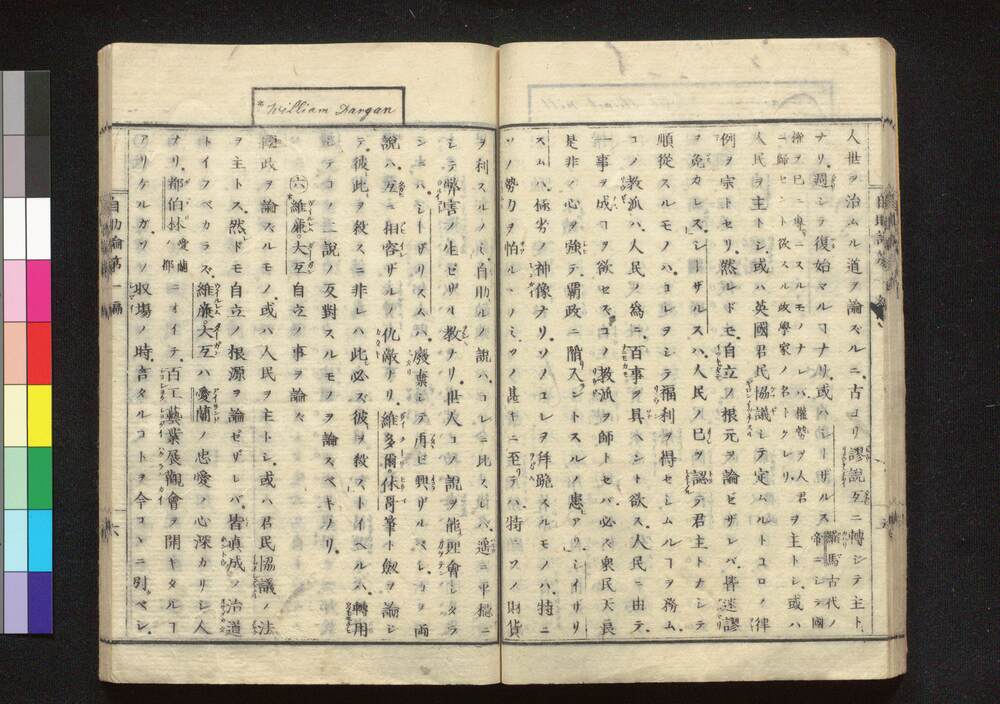 人世ヲ治ムル道ヲ論ズルニ古ヨリ謬説タニ轉シテ主ト
ナリ週シテ復始マルコナリ或ハシーザルス羅馬古代ノ帝ニシテ國
權ヲ已ニ專ニスルモノナレバ權勢ヲ人君ヲ主トシ或ハ
ニ歸セント欲スル政學家ノ名トナレリ
人民ヲ主トシ或ハ英國君民協議シテ定ムルトコロノ律
例ヲ宗トセリ然レドモ自立ノ根元ヲ論ゼザレバ皆迷謬
ヲ免カレズシーザルスハ人民ノ已ヲ認テ君主トカシテ
順從スルモノハコレヲシテ福利ヲ得セシムルコヲ務ム
コノ教派ハ人民ノ爲ニ百事ヲ具ヘント欲ス人民ニ由テ
一事ヲ成コヲ欲セズコノ教派ヲ師トセバ必ズ衆民天良
是非ノ心ヲ強テ霸政ニ陷入ントスルノ患アリシイザリ
スムハ極劣ノ神像ナリソノコレヲ拜跪スルモノハ特ニ
ソノ勢力ヲ怕ルヽノミソノ甚キニ至テハ特ソノ財貨
William Dargan
ヲ利スルノミ自助ルノ説ハコレニ比スレバ遥ニ平穏ニ
シテ弊害ノ生ゼザル教ナリ世人コノ説ヲ能理會シタラ
ンニハシーザリスム廢棄シテ再ビ興ザルベシカヽ両
説ハ互ニ相容ザルノ仇敵ナリ維多爾休哥筆ト劔ヲ論シ
テ彼此ヲ殺スニ非レハ此必ズ彼ヲ殺ストイヘルハ轉用
シテコノ二説ノ反對スルモノヲ論スベキナリ
㊅維廉大互自立ノ事ヲ論ズ
政ヲ論スルモノ或ハ人民ヲ主トシ或ハ君民協議ノ法
ヲ主トス然ドモ自立ノ根源ヲ論ゼザレバ皆真成ノ治道
トイフベカラズ維廉大互ハ愛蘭ノ忠愛ノ心深カリシ人
ナリ都伯林愛蘭ノ都ニオイテ百工藝業展觀會ヲ開キタルコ
アリケルガソノ収場ノ時言タルコトヲ今コヽニ引ベシ
自助論第一編
六